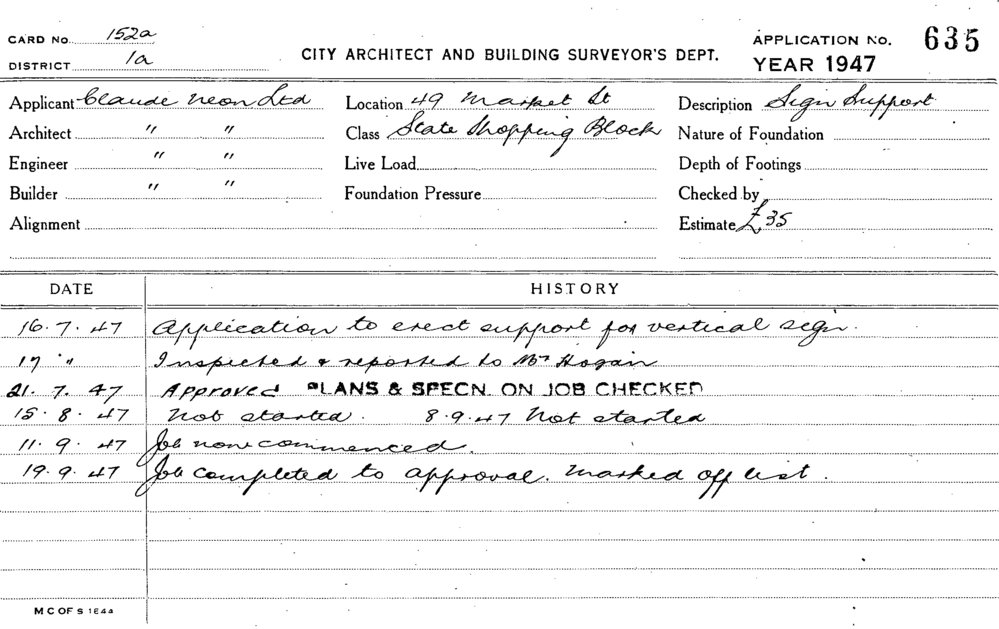 CARD No. 152a
DISTRICT 1a
CITY ARCHITECT AND BUILDING SURVEYOR'S DEPT.
APPLICATION No. 635
YEAR 1947
Applicant Claude Neon Ltd Location 49 Market St Description Sign Support
Architect " " Class State Shopping Block Nature of Foundation
Engineer " " Live Load Depth of Footings
Builder " " Foundation Pressure Checked by
Alignment Estimate £35
DATE HISTORY
16.7.47 Application to erect support for vertical sign.
17 " Inspected & reported to Mr Hogain
21.7.47 Approved PLANS & SPECN. ON JOB CHECKED
15.8.47 Not started. 8.9.47 Not started
11.9.47 Job now commenced.
19.9.47 Job completed to approval. Marked off list.
M C OF S 1844